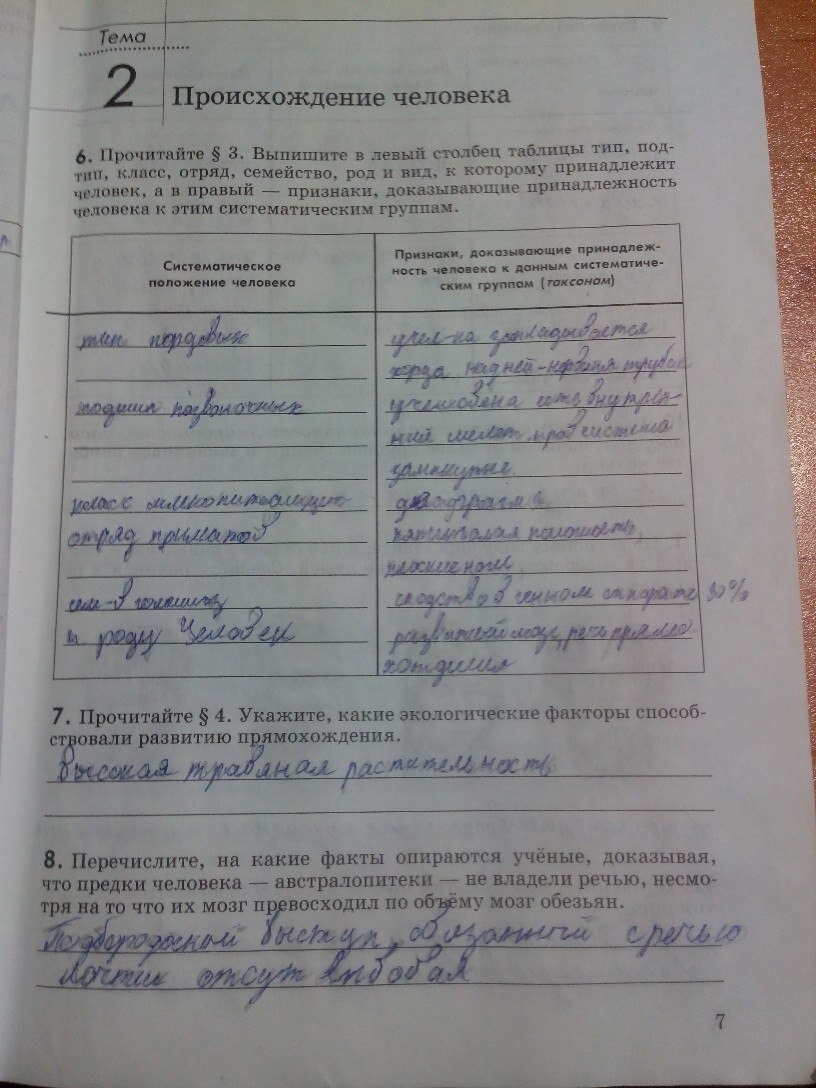 Тема
2 Происхождение человека
6. Прочитайте § 3. Выпишите в левый столбец таблицы тип, под-
тип, класс, отряд, семейство, род и вид, к которому принадлежит
человек, а в правый — признаки, доказывающие принадлежность
человека к этим систематическим группам.
Систематическое
положение человека
Признаки, доказывающие принадлеж-
ность человека к данным систематиче-
ским группам (таксонам)
тип хордовых
у чел-ка закладывается
хорда над ней-нервная трубка
подтип позвоночных
у человека есть внутрен-
ний скелет, кров система
замкнутые
класс млекопитающих
диафрагма
отряд приматов
пятипалая конечность,
плоские ногти
сходство в генном аппарате 90%
к роду Человек
развитый мозг, речь, прямо
хождения
7. Прочитайте § 4. Укажите, какие экологические факторы способ-
ствовали развитию прямохождения.
Высокая травяная растительность
8. Перечислите, на какие факты опираются учёные, доказывая,
что предки человека — австралопитеки — не владели речью, несмо-
тря на то что их мозг превосходил по объёму мозг обезьян.
Подбородосный выступ, связанный с речью
почти отсутвывовал
7